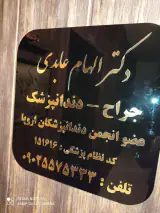 دکتر الهام عابدی
جراح - دندانپزشک
عضو انجمن دندانپزشکان اروپا
کد نظام پزشکی : ۱۵۱۶۱۴
تلفن : ۰۹۰۲۵۵۷۵۳۳۳